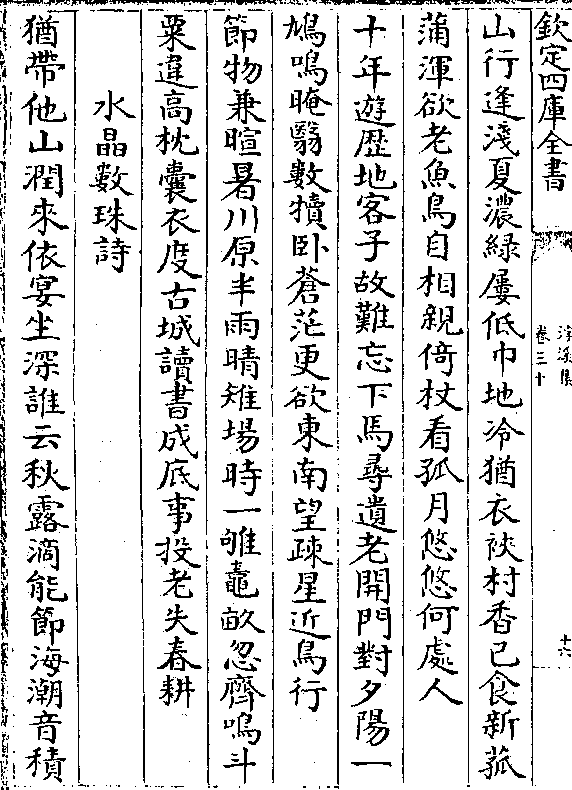 欽定四庫全書
浮溪集
卷三十
十六
山行逢淺夏濃綠屢低巾地冷猶衣裌村香已食新菰
蒲渾欲老魚鳥自相親倚杖看孤月悠悠何處人
十年遊歴地客子故難忘下馬尋遺老開門對夕陽一
鳩鳴晻翳數犢卧蒼茫更欲東南望疎星近鳥行
節物兼暄暑川原半雨晴雉場時一雊鼃畝忽齊鳴斗
粟違高枕囊衣度古城讀書成底事投老失春耕
水晶數珠詩
猶帶他山潤來依宴坐深誰云秋露滴能節海潮音積